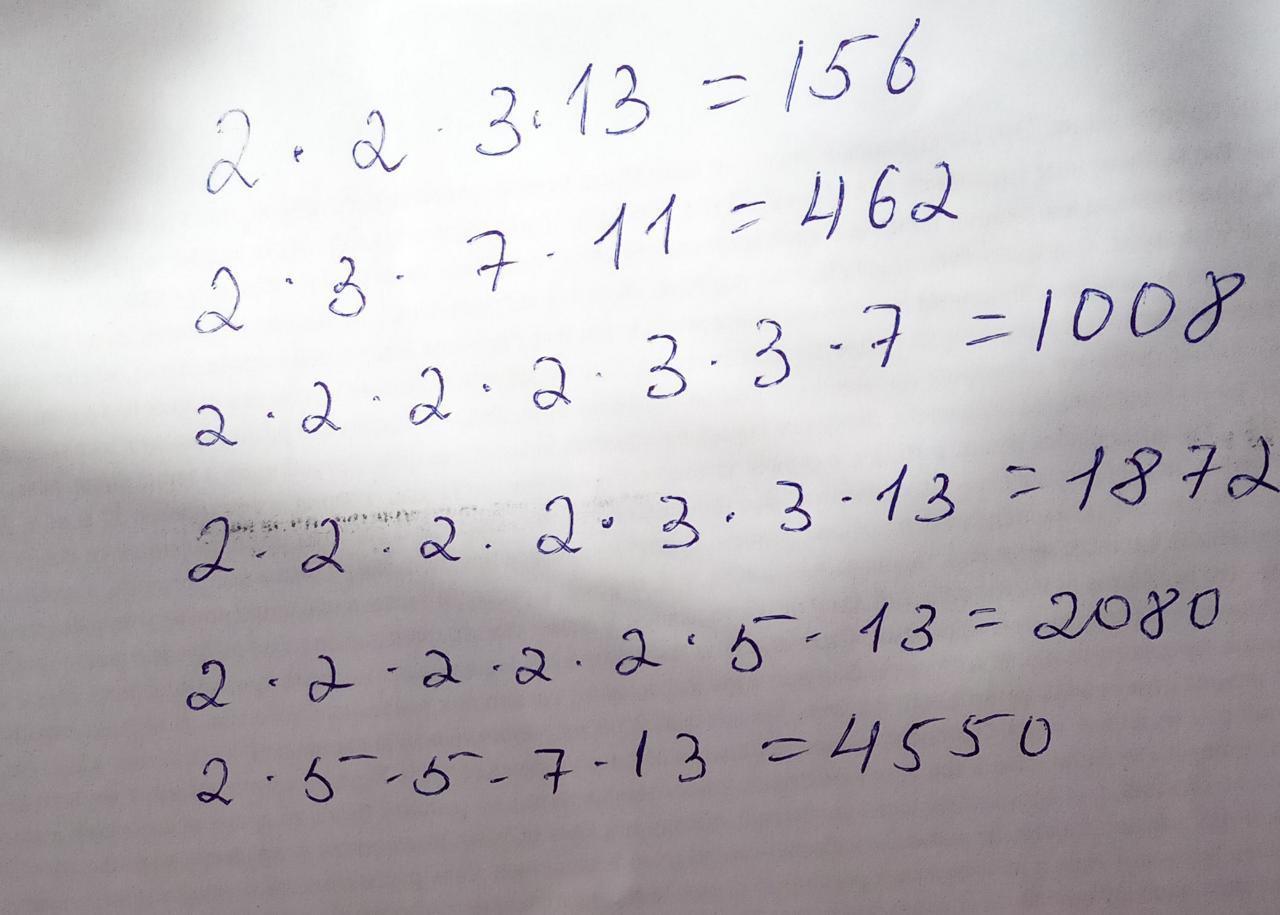 2 · 2 · 3 · 13 = 156
2 · 3 · 7 · 11 = 462
2 · 2 · 2 · 2 · 3 · 3 · 7 = 1008
2 · 2 · 2 · 2 · 3 · 3 · 13 = 1872
2 · 2 · 2 · 2 · 2 · 5 · 13 = 2080
2 · 5 · 5 · 7 · 13 = 4550